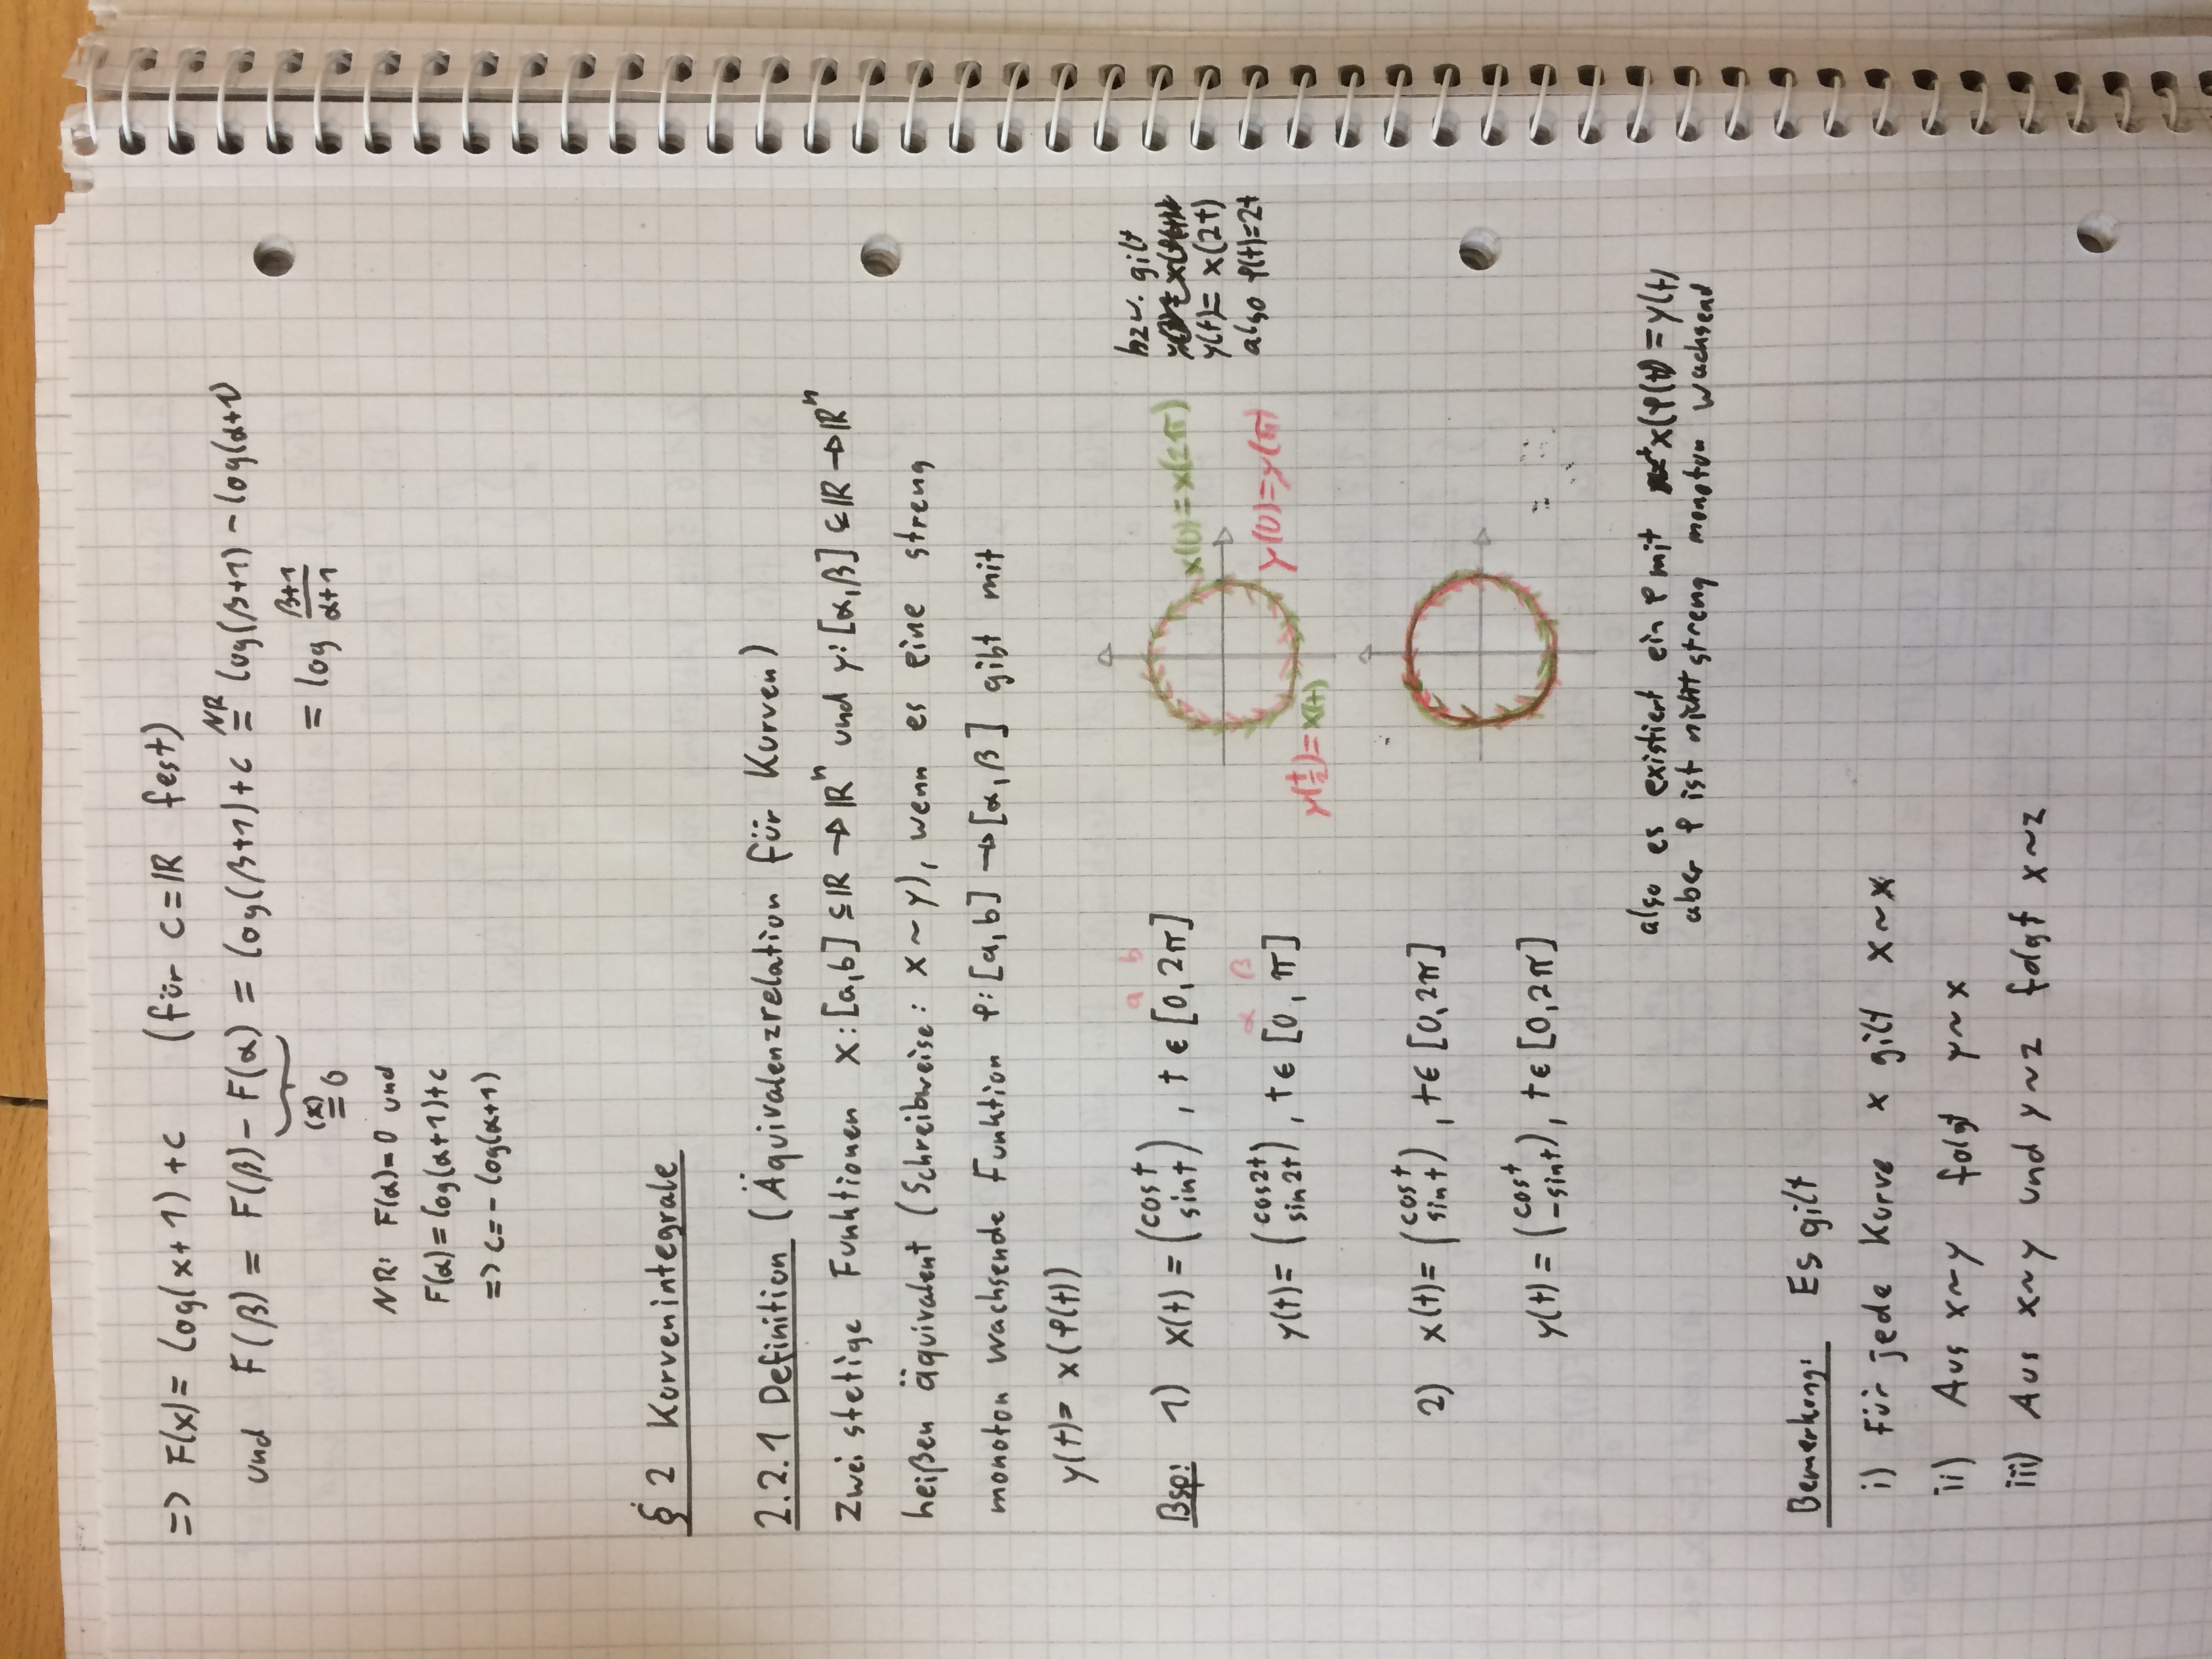 => F(x) = log(x+1) + c (für c = ℝ fest)
und F(β) = F(β) − F(α) = log(β+1) + c =^{NR} log(β+1) − log(α+1)
(*)= 0
= log (β+1)/(α+1)
NR: F(α)=0 und
F(α) = log(α+1)+c
=> c = − log(α+1)
§ 2 Kurvenintegrale
2.2.1 Definition (Äquivalenzrelation für Kurven)
Zwei stetige Funktionen x: [a,b] ⊆ ℝ → ℝⁿ und y: [α,β] ⊆ ℝ → ℝⁿ
heißen äquivalent (Schreibweise: x ~ y), wenn es eine streng
monoton wachsende Funktion φ: [a,b] → [α,β] gibt mit
y(t) = x(φ(t))
a b
Bsp: 1) x(t) = (cos t, sin t), t ∈ [0, 2π]
α β
y(t) = (cos 2t, sin 2t), t ∈ [0, π]
x(0) = x(2π)
y(0) = y(π)
y(t/2) = x(t)
bzw. gilt
y(t) = x(2t)
also φ(t) = 2t
2) x(t) = (cos t, sin t), t ∈ [0, 2π]
y(t) = (cos t, −sin t), t ∈ [0, 2π]
also es existiert ein φ mit x(φ(t)) = y(t)
aber φ ist nicht streng monoton wachsend
Bemerkung: Es gilt
i) Für jede Kurve x gilt x ~ x
ii) Aus x ~ y folgt y ~ x
iii) Aus x ~ y und y ~ z folgt x ~ z